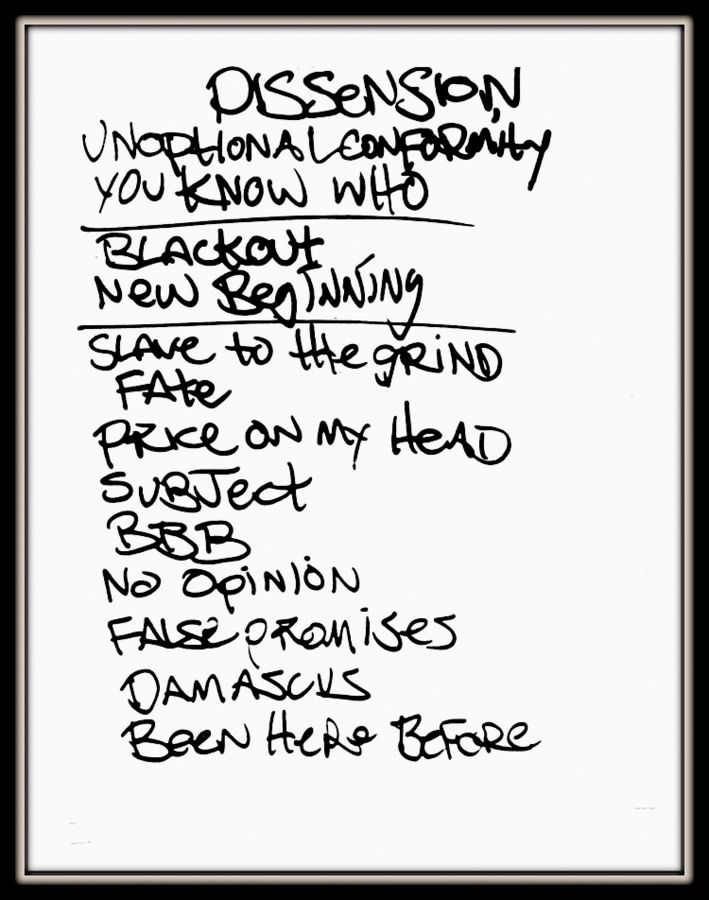 DISSENSION
UNOPTIONAL CONFORMITY
YOU KNOW WHO
BLACKOUT
NEW BEGINNING
SLAVE to tHe GRIND
FAte
PRICE ON MY HeAD
SUBJect
BBB
NO OPINION
FALSE PROMISES
DAMASCUS
BEEN HERE BEFORE